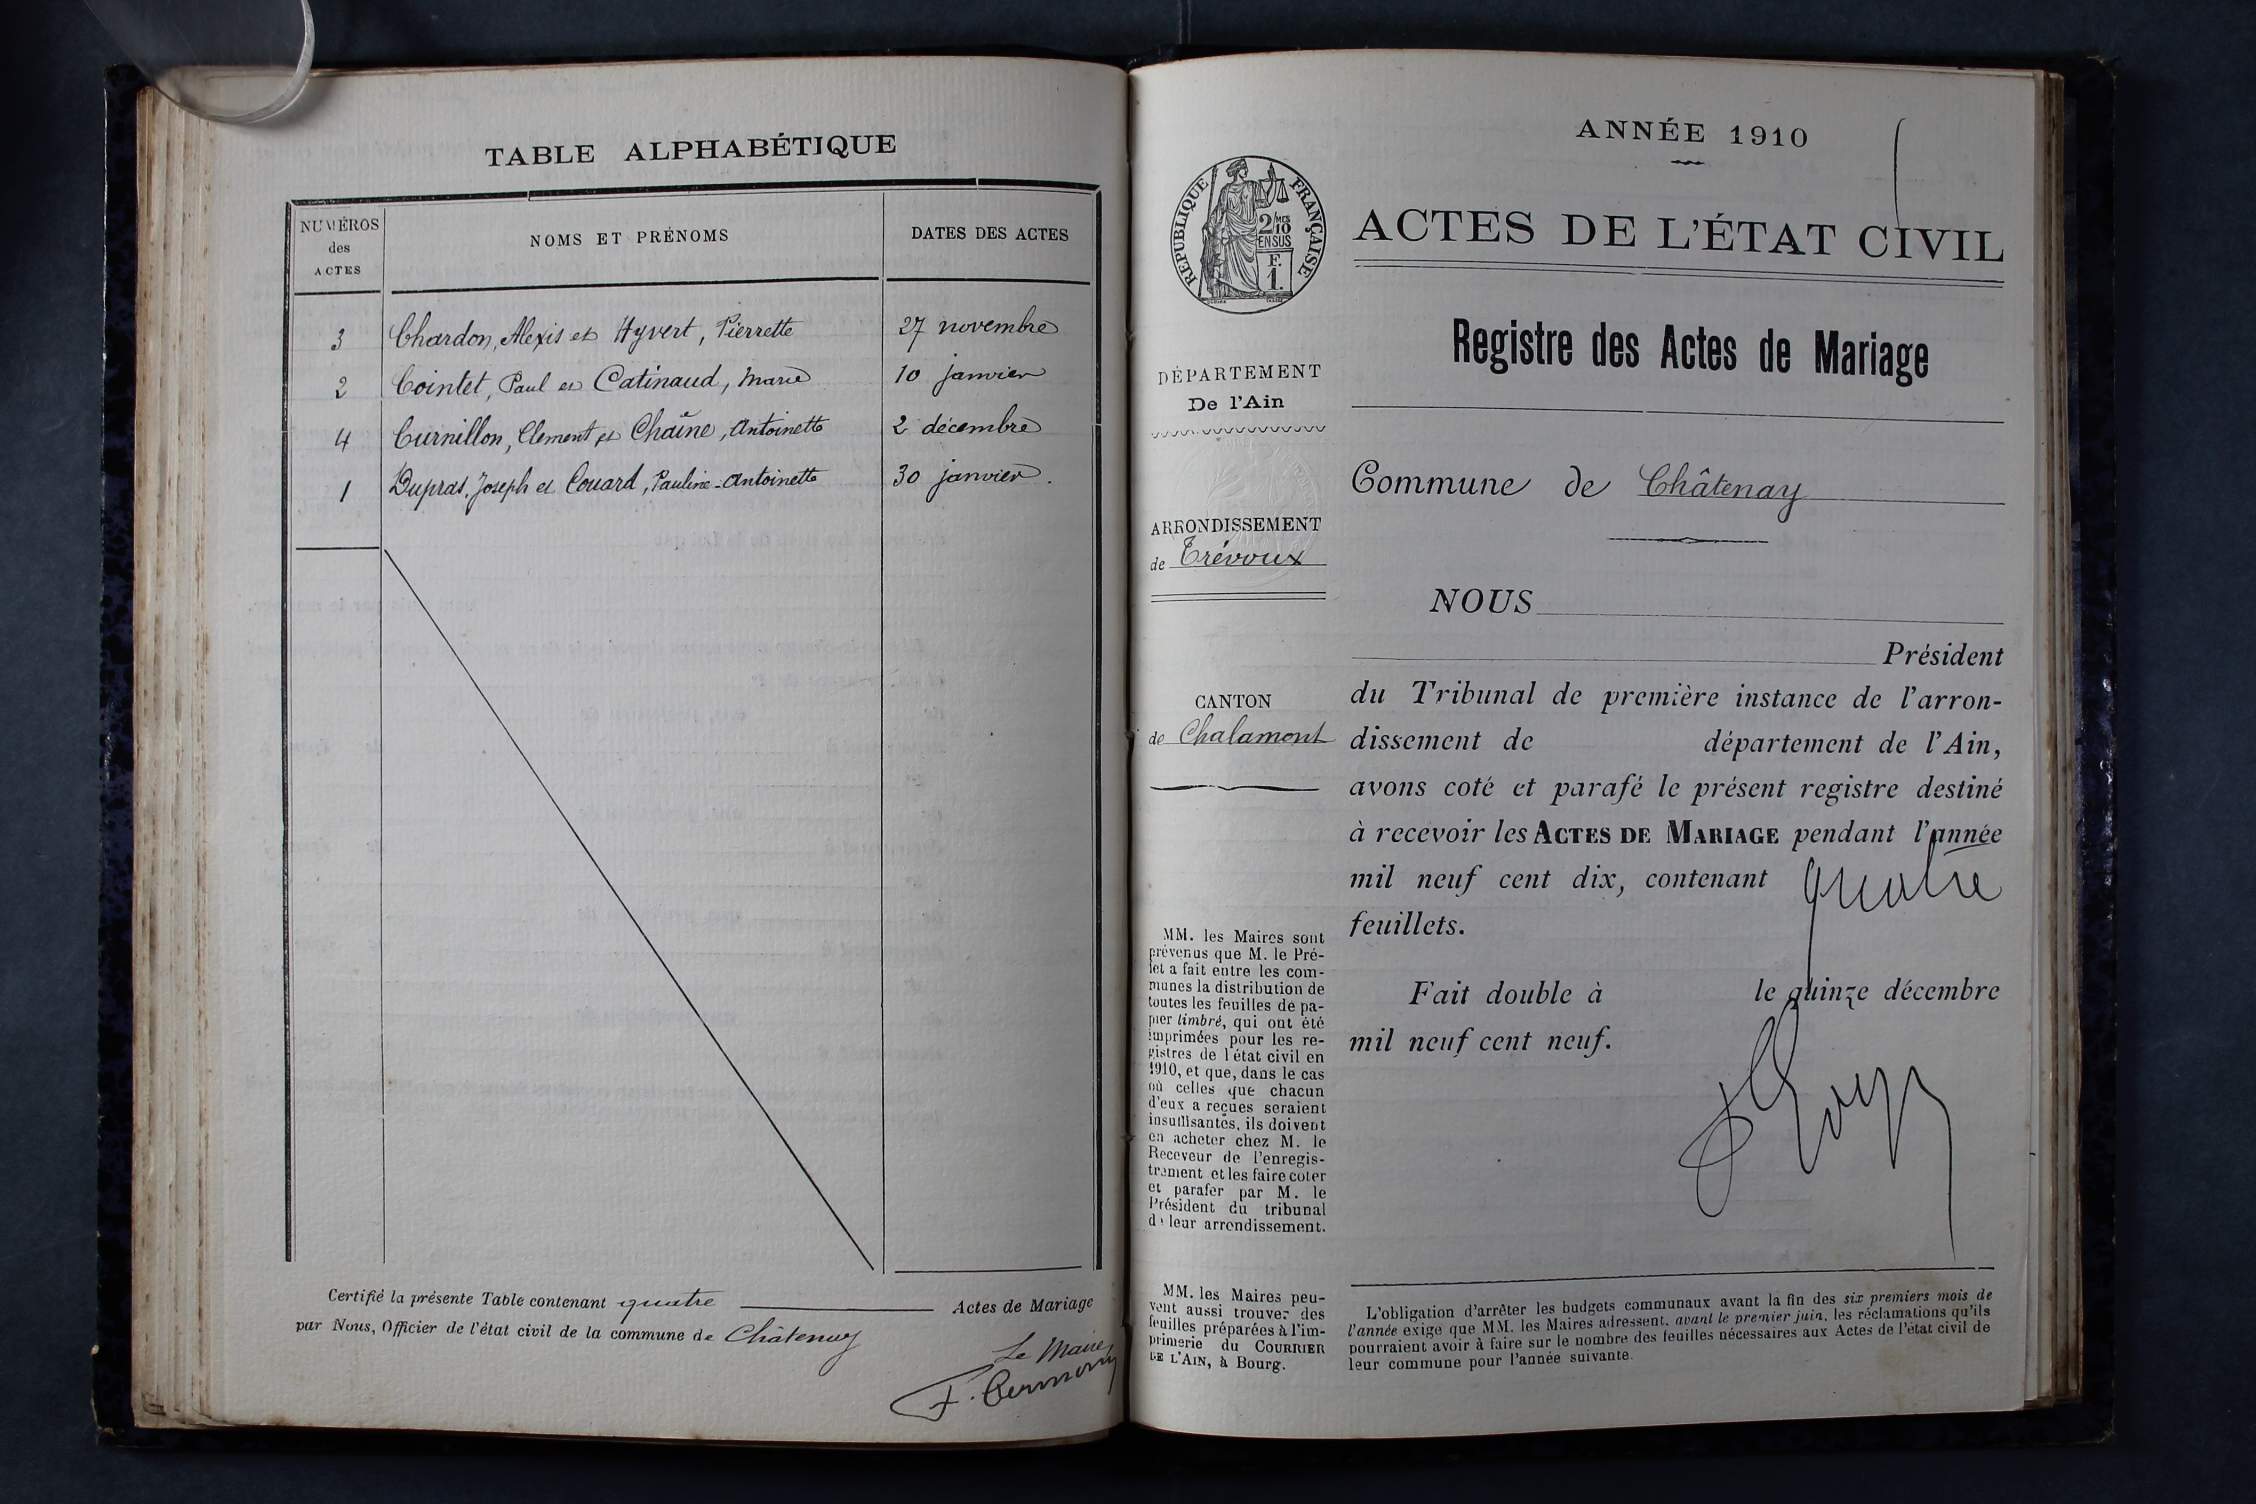 TABLE ALPHABÉTIQUE
NUMÉROS
des
ACTES
NOMS ET PRÉNOMS
DATES DES ACTES
3 Chardon, Alexis et Hyvert, Pierrette 27 novembre
2 Cointet, Paul et Catinaud, Marie 10 janvier
4 Curnillon, Clement et Chaîne, Antoinette 2 décembre
1 Dupras, Joseph et Couard, Pauline-Antoinette 30 janvier.
Certifié la présente Table contenant quatre Actes de Mariage
par Nous, Officier de l'état civil de la commune de Châtenay
Le Maire
ANNÉE 1910
RÉPUBLIQUE FRANÇAISE
2/10 MES
EN SUS
F.
1.
ACTES DE L'ÉTAT CIVIL
Registre des Actes de Mariage
DÉPARTEMENT
De l'Ain
ARRONDISSEMENT
de Trévoux
CANTON
de Chalamont
MM. les Maires sont
prévenus que M. le Pré-
fet a fait entre les com-
munes la distribution de
toutes les feuilles de pa-
pier timbré, qui ont été
imprimées pour les re-
gistres de l'état civil en
1910, et que, dans le cas
où celles que chacun
d'eux a reçues seraient
insuffisantes, ils doivent
en acheter chez M. le
Receveur de l'enregis-
trement et les faire coter
et parafer par M. le
Président du tribunal
de leur arrondissement.
MM. les Maires peu-
vent aussi trouver des
feuilles préparées à l'im-
primerie du COURRIER
DE L'AIN, à Bourg.
Commune de Châtenay
NOUS
Président
du Tribunal de première instance de l'arron-
dissement de département de l'Ain,
avons coté et parafé le présent registre destiné
à recevoir les ACTES DE MARIAGE pendant l'année
mil neuf cent dix, contenant quatre
feuillets.
Fait double à le quinze décembre
mil neuf cent neuf.
L'obligation d'arrêter les budgets communaux avant la fin des six premiers mois de
l'année exige que MM. les Maires adressent, avant le premier juin, les réclamations qu'ils
pourraient avoir à faire sur le nombre des feuilles nécessaires aux Actes de l'état civil de
leur commune pour l'année suivante.